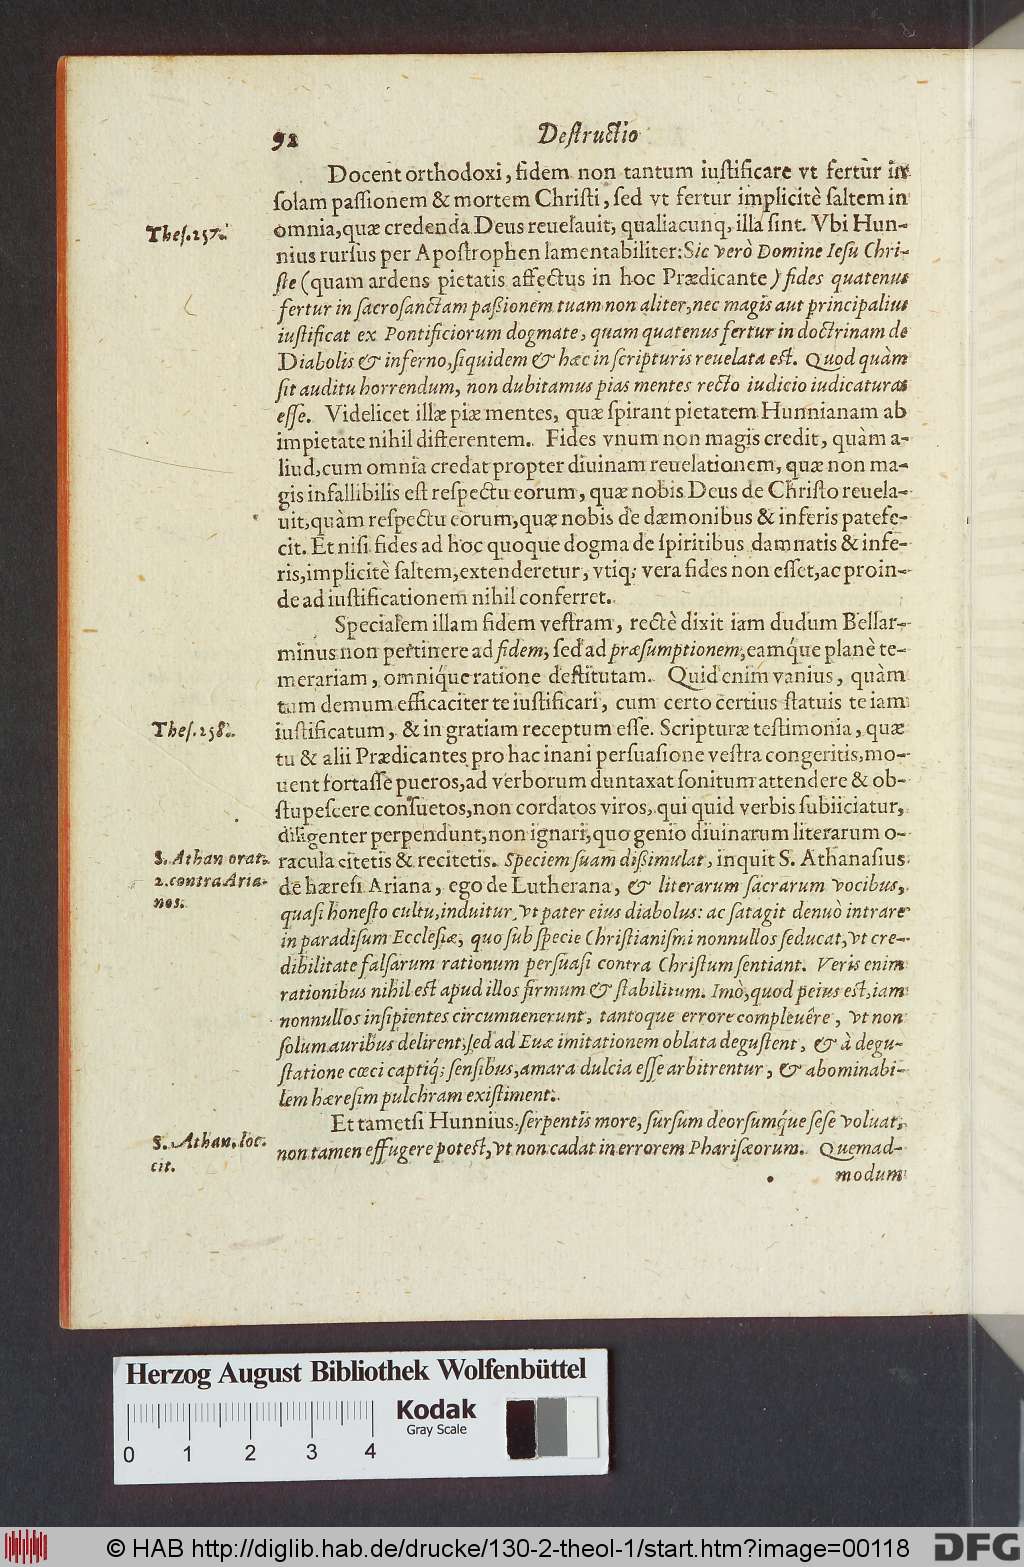 92 Destructio
Docent orthodoxi, fidem non tantum iustificare vt fertùr in
solam passionem & mortem Christi, sed vt fertur implicitè saltem in
Thes. 257. omnia, quæ credenda Deus reuelauit, qualiacunq, illa sint. Vbi Hun-
nius rursus per Apostrophen lamentabiliter: Sic verò Domine Iesu Chri-
ste (quam ardens pietatis affectus in hoc Prædicante) fides quatenus
fertur in sacrosanctam passionem tuam non aliter, nec magis aut principalius
iustificat ex Pontificiorum dogmate, quam quatenus fertur in doctrinam de
Diabolis & inferno, siquidem & hæc in scripturis reuelata est. Quod quàm
sit auditu horrendum, non dubitamus pias mentes recto iudicio iudicaturas
esse. Videlicet illæ piæ mentes, quæ spirant pietatem Hunnianam ab
impietate nihil differentem. Fides vnum non magis credit, quàm a-
liud, cum omnia credat propter diuinam reuelationem, quæ non ma-
gis infallibilis est respectu eorum, quæ nobis Deus de Christo reuela-
uit, quàm respectu eorum, quæ nobis de dæmonibus & inferis patefe-
cit. Et nisi fides ad hoc quoque dogma de spiritibus damnatis & infe-
ris, implicitè saltem, extenderetur, vtiq; vera fides non esset, ac proin-
de ad iustificationem nihil conferret.
Specialem illam fidem vestram, rectè dixit iam dudum Bellar-
minus non pertinere ad fidem, sed ad præsumptionem, eamq́ue planè te-
merariam, omniq́ue ratione destitutam. Quid enim vanius, quàm
tum demum efficaciter te iustificari, cum certo certius statuis te iam
Thes. 258. iustificatum, & in gratiam receptum esse. Scripturæ testimonia, quæ
tu & alii Prædicantes pro hac inani persuasione vestra congeritis, mo-
uent fortasse pueros, ad verborum duntaxat sonitum attendere & ob-
stupescere consuetos, non cordatos viros, qui quid verbis subiiciatur,
diligenter perpendunt, non ignari, quo genio diuinarum literarum o-
S. Athan orat. racula citetis & recitetis. Speciem suam dissimulat, inquit S. Athanasius
2. contra Aria- de hæresi Ariana, ego de Lutherana, & literarum sacrarum vocibus,
nos. quasi honesto cultu, induitur, vt pater eius diabolus: ac satagit denuò intrare
in paradisum Ecclesiæ, quo sub specie Christianismi nonnullos seducat, vt cre-
dibilitate falsarum rationum persuasi contra Christum sentiant. Veris enim
rationibus nihil est apud illos firmum & stabilitum. Imò, quod peius est, iam
nonnullos insipientes circumuenerunt, tantoque errore compleuêre, vt non
solum auribus delirent, sed ad Euæ imitationem oblata degustent, & à degu-
statione cœci captiq́; sensibus, amara dulcia esse arbitrentur, & abominabi-
lem hæresim pulchram existiment.
Et tametsi Hunnius, serpentis more, sursum deorsumq́ue sese voluat,
S. Athan. loc. non tamen effugere potest, vt non cadat in errorem Pharisæorum. Quemad-
cit. modum
Herzog August Bibliothek Wolfenbüttel
Kodak
Gray Scale
0 1 2 3 4
© HAB http://diglib.hab.de/drucke/130-2-theol-1/start.htm?image=00118 DFG